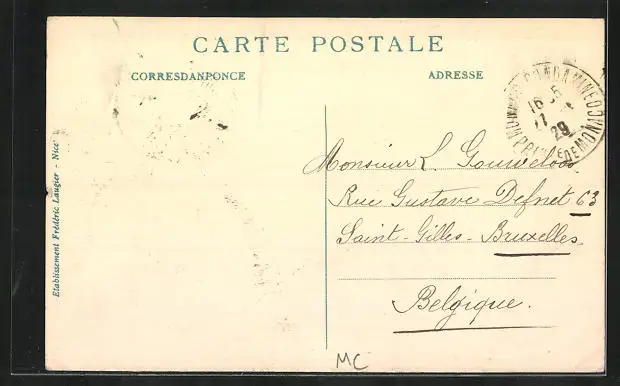 CARTE POSTALE
CORRESDANPONCE
ADRESSE
Etablissement Frédéric Laugier - Nice
CONDAMINE
16 35
29
PPTÉ DE MONACO
Monsieur L. Gouweloos
Rue Gustave Defnet 63
Saint-Gilles-Bruxelles
Belgique.
MC